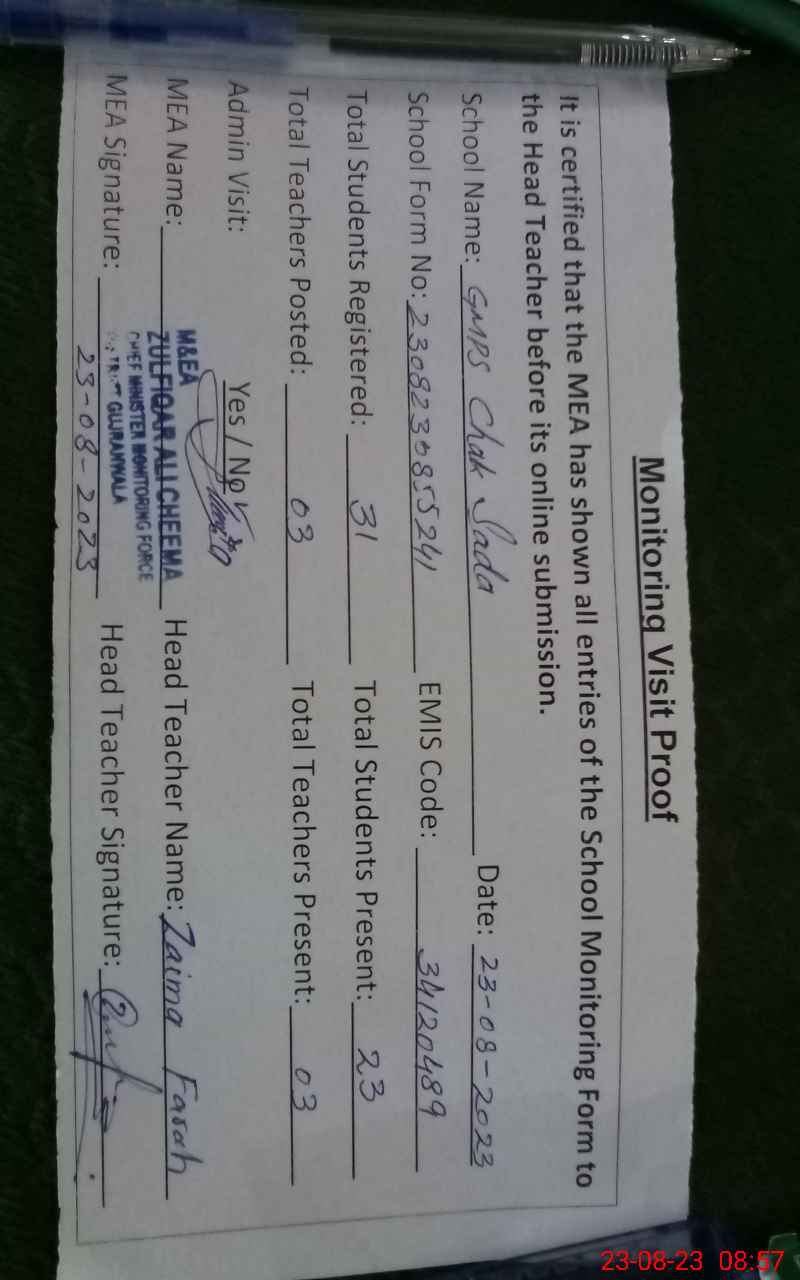 Monitoring Visit Proof
It is certified that the MEA has shown all entries of the School Monitoring Form to
the Head Teacher before its online submission.
School Name: GMPS Chak Jada Date: 23-08-2023
School Form No: 2308230855241 EMIS Code: 34120489
Total Students Registered: 31 Total Students Present: 23
Total Teachers Posted: 03 Total Teachers Present: 03
Admin Visit: Yes / No
M&EA
MEA Name: ZULFIQAR ALI CHEEMA Head Teacher Name: Zaima Farah
CHIEF MINISTER MONITORING FORCE
MEA Signature: GUJRANWALA Head Teacher Signature:
23-08-2023
23-08-23 08:57